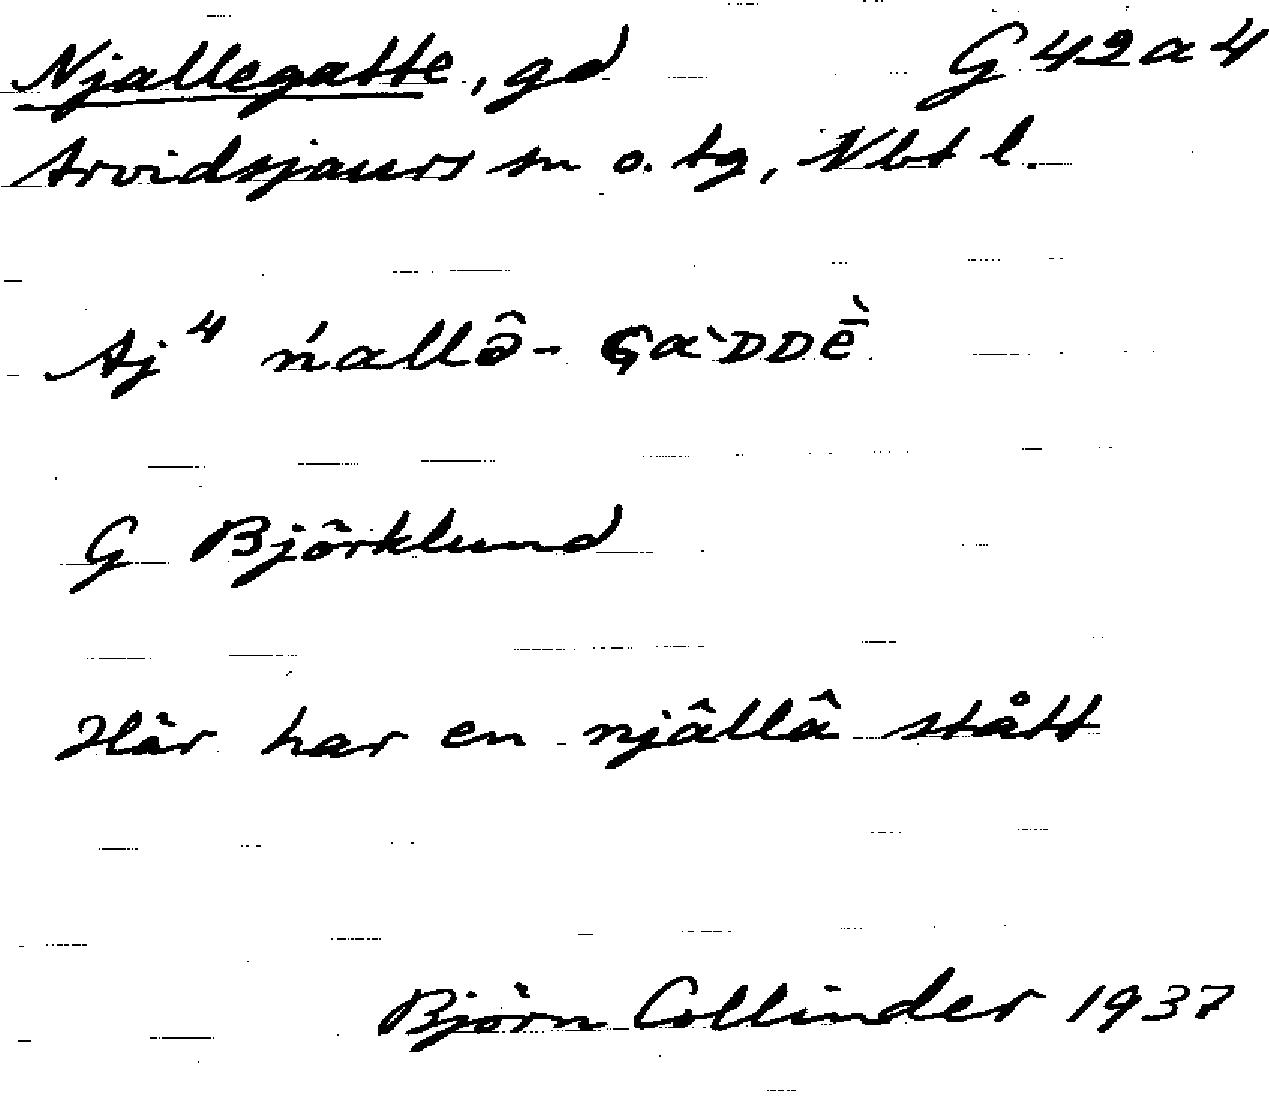 Njallegatte, gd G 42 a 4
Arvidsjaurs sn o. tg, Nbt l.
Aj⁴ ńallô- Gɑ̀DDḔ
G Björklund
Här har en njâllâ stått
Björn Collinder 1937